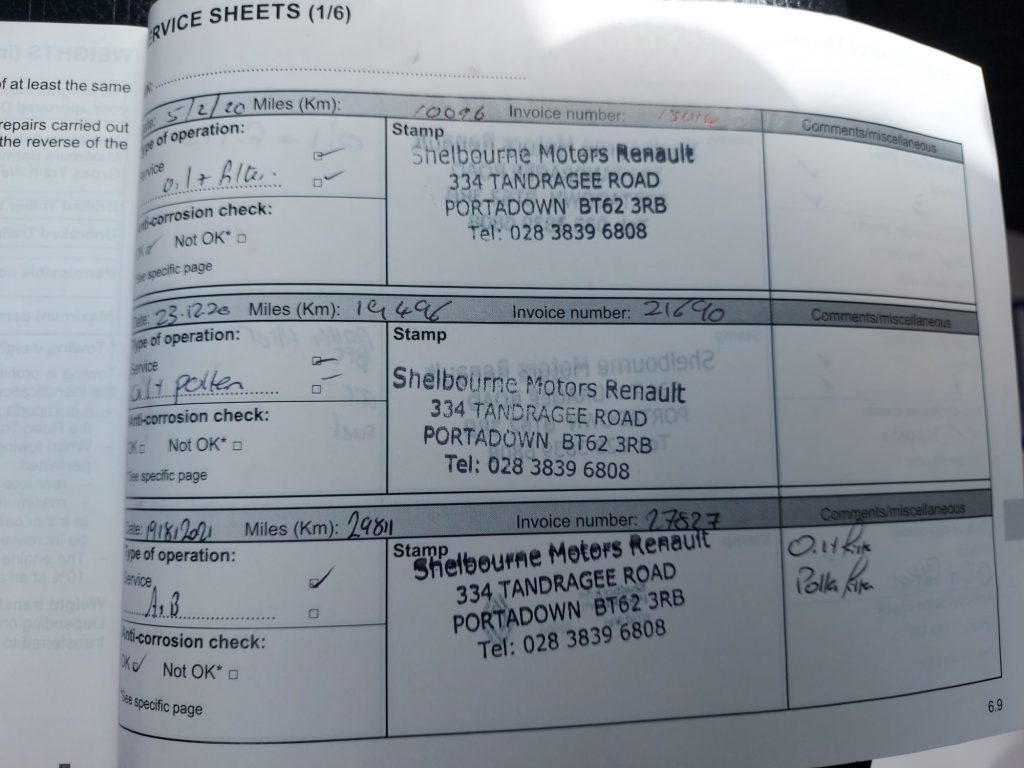 f at least the same
repairs carried out
the reverse of the
ERVICE SHEETS (1/6)
5/2/20 Miles (Km): 10096 Invoice number: 18014 Comments/miscellaneous
Type of operation:
Service
Oil + filter
Anti-corrosion check:
OK Not OK*
*See specific page
Stamp
Shelbourne Motors Renault
334 TANDRAGEE ROAD
PORTADOWN BT62 3RB
Tel: 028 3839 6808
Date: 23.12.20 Miles (Km): 19,496 Invoice number: 21690 Comments/miscellaneous
Type of operation:
Service
Oil + pollen
Anti-corrosion check:
OK Not OK*
*See specific page
Stamp
Shelbourne Motors Renault
334 TANDRAGEE ROAD
PORTADOWN BT62 3RB
Tel: 028 3839 6808
Date: 19/8/2021 Miles (Km): 29811 Invoice number: 27827 Comments/miscellaneous
Type of operation:
Service
A+B
Anti-corrosion check:
OK Not OK*
*See specific page
Stamp
Shelbourne Motors Renault
334 TANDRAGEE ROAD
PORTADOWN BT62 3RB
Tel: 028 3839 6808
Oil +
6.9